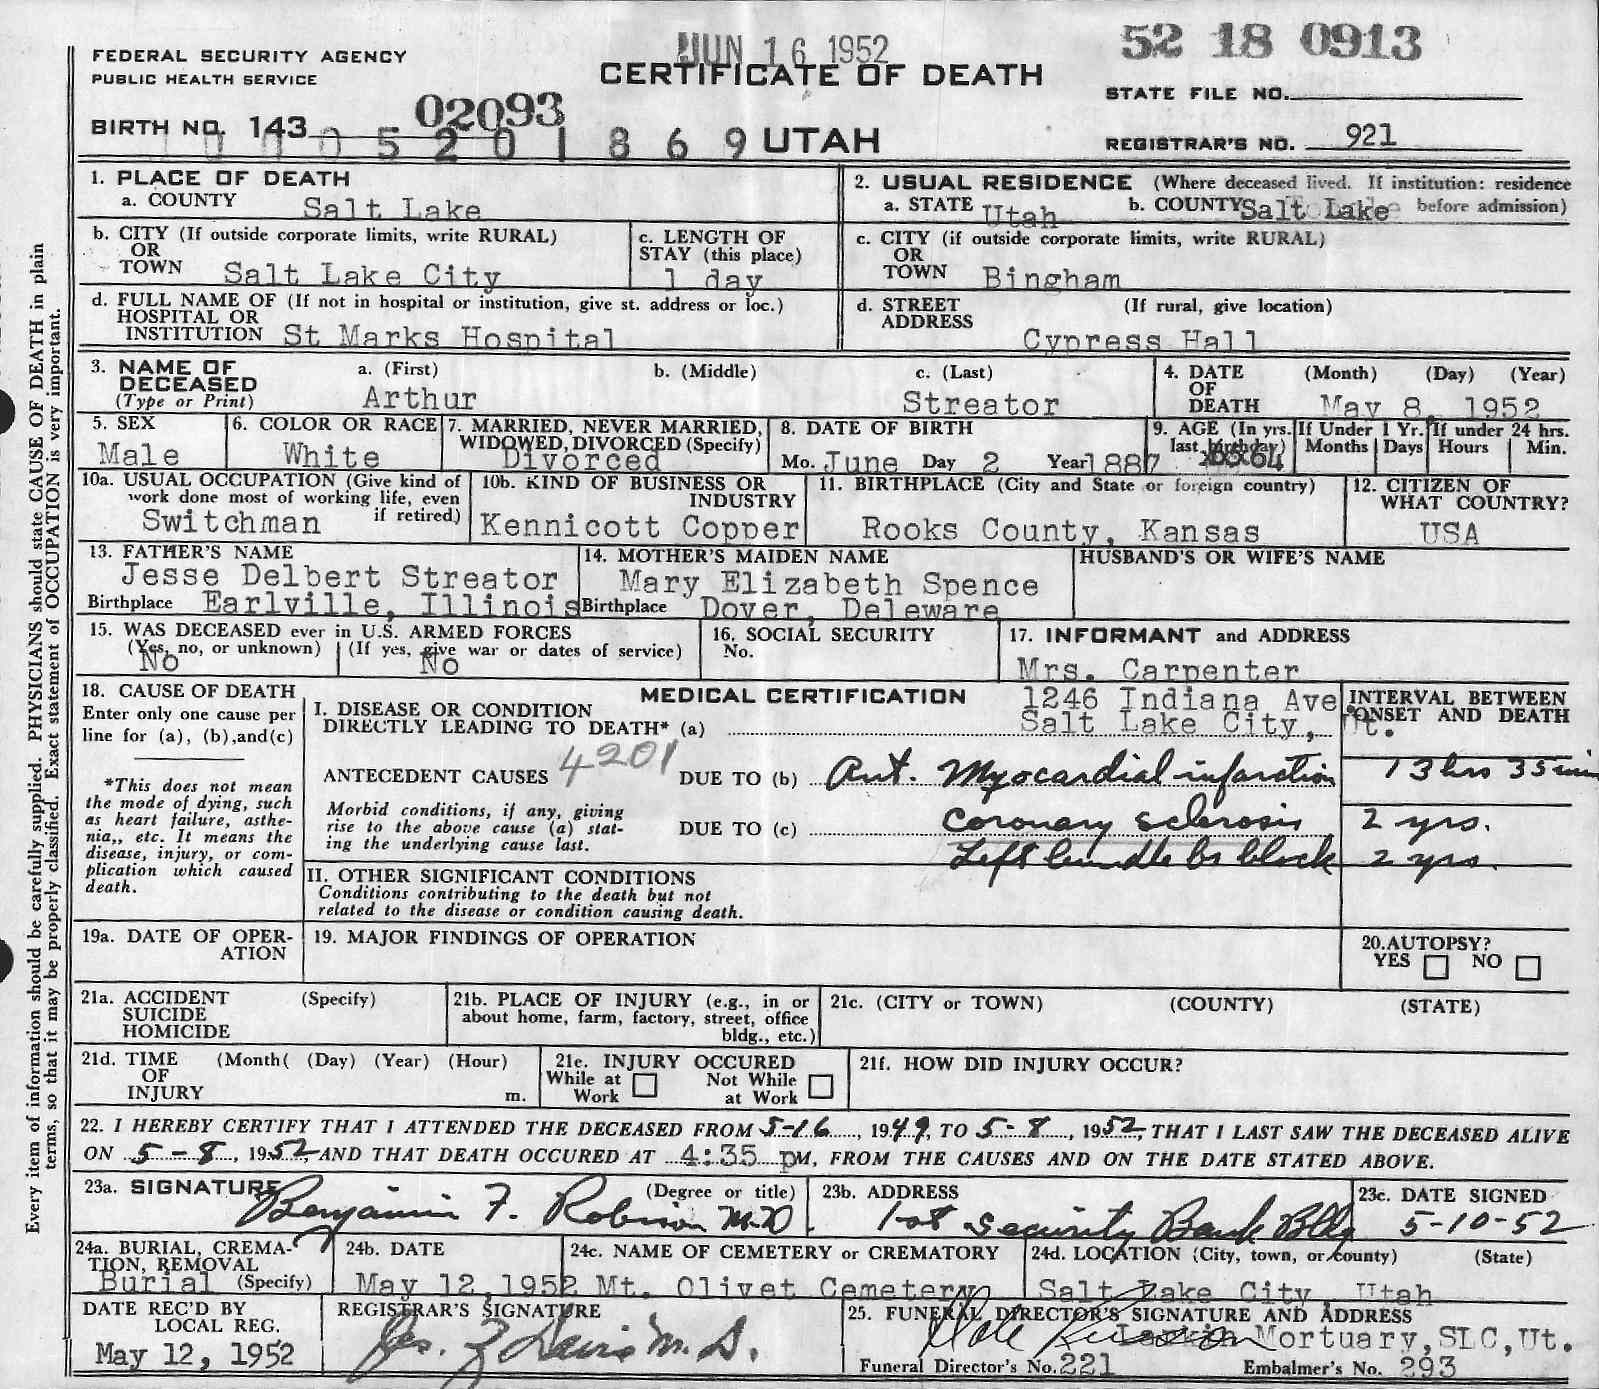 JUN 16 1952
52 18 0913
FEDERAL SECURITY AGENCY
PUBLIC HEALTH SERVICE
CERTIFICATE OF DEATH
STATE FILE NO.
BIRTH NO. 143 02093
0520 1869 UTAH
REGISTRAR'S NO. 921
1. PLACE OF DEATH
a. COUNTY Salt Lake
2. USUAL RESIDENCE (Where deceased lived. If institution: residence before admission)
a. STATE Utah b. COUNTY Salt Lake
b. CITY (If outside corporate limits, write RURAL)
OR
TOWN Salt Lake City
c. LENGTH OF
STAY (this place)
1 day
c. CITY (if outside corporate limits, write RURAL)
OR
TOWN Bingham
d. FULL NAME OF (If not in hospital or institution, give st. address or loc.)
HOSPITAL OR
INSTITUTION St Marks Hospital
d. STREET (If rural, give location)
ADDRESS
Cypress Hall
3. NAME OF DECEASED
(Type or Print)
a. (First) b. (Middle) c. (Last)
Arthur Streator
4. DATE OF DEATH (Month) (Day) (Year)
May 8, 1952
5. SEX
Male
6. COLOR OR RACE
White
7. MARRIED, NEVER MARRIED,
WIDOWED, DIVORCED (Specify)
Divorced
8. DATE OF BIRTH
Mo. June Day 2 Year 1887
9. AGE (In yrs. last birthday) 64
If Under 1 Yr. Months Days
If under 24 hrs. Hours Min.
10a. USUAL OCCUPATION (Give kind of
work done most of working life, even
if retired)
Switchman
10b. KIND OF BUSINESS OR
INDUSTRY
Kennicott Copper
11. BIRTHPLACE (City and State or foreign country)
Rooks County, Kansas
12. CITIZEN OF
WHAT COUNTRY?
USA
13. FATHER'S NAME
Jesse Delbert Streator
Birthplace Earlville, Illinois
14. MOTHER'S MAIDEN NAME
Mary Elizabeth Spence
Birthplace Dover, Deleware
HUSBAND'S OR WIFE'S NAME
15. WAS DECEASED ever in U.S. ARMED FORCES
(Yes, no, or unknown) (If yes, give war or dates of service)
No No
16. SOCIAL SECURITY
No.
17. INFORMANT and ADDRESS
Mrs. Carpenter
1246 Indiana Ave
Salt Lake City, Ut.
18. CAUSE OF DEATH
Enter only one cause per
line for (a), (b), and (c)
*This does not mean
the mode of dying, such
as heart failure, asthe-
nia,, etc. It means the
disease, injury, or com-
plication which caused
death.
MEDICAL CERTIFICATION
I. DISEASE OR CONDITION
DIRECTLY LEADING TO DEATH* (a)
INTERVAL BETWEEN
ONSET AND DEATH
4201
ANTECEDENT CAUSES DUE TO (b) Ant. Myocardial infarction 13 hrs 35 min
Morbid conditions, if any, giving
rise to the above cause (a) stat-
ing the underlying cause last.
DUE TO (c) Coronary sclerosis 2 yrs.
Left bundle br block 2 yrs.
II. OTHER SIGNIFICANT CONDITIONS
Conditions contributing to the death but not
related to the disease or condition causing death.
19a. DATE OF OPER-
ATION
19. MAJOR FINDINGS OF OPERATION
20. AUTOPSY?
YES NO
21a. ACCIDENT (Specify)
SUICIDE
HOMICIDE
21b. PLACE OF INJURY (e.g., in or
about home, farm, factory, street, office
bldg., etc.)
21c. (CITY or TOWN) (COUNTY) (STATE)
21d. TIME (Month( (Day) (Year) (Hour)
OF
INJURY m.
21e. INJURY OCCURED
While at Work Not While at Work
21f. HOW DID INJURY OCCUR?
22. I HEREBY CERTIFY THAT I ATTENDED THE DECEASED FROM 5-16, 1949, TO 5-8, 1952, THAT I LAST SAW THE DECEASED ALIVE
ON 5-8, 1952, AND THAT DEATH OCCURED AT 4:35 PM, FROM THE CAUSES AND ON THE DATE STATED ABOVE.
23a. SIGNATURE (Degree or title)
Benjamin F. Robison M.D.
23b. ADDRESS
1st Security Bank Bldg
23c. DATE SIGNED
5-10-52
24a. BURIAL, CREMA-
TION, REMOVAL
Burial (Specify)
24b. DATE
May 12, 1952
24c. NAME OF CEMETERY or CREMATORY
Mt. Olivet Cemetery
24d. LOCATION (City, town, or county) (State)
Salt Lake City, Utah
DATE REC'D BY
LOCAL REG.
May 12, 1952
REGISTRAR'S SIGNATURE
25. FUNERAL DIRECTOR'S SIGNATURE AND ADDRESS
Larkin Mortuary, SLC, Ut.
Funeral Director's No. 221 Embalmer's No. 293
Every item of information should be carefully supplied. PHYSICIANS should state CAUSE OF DEATH in plain
terms, so that it may be properly classified. Exact statement of OCCUPATION is very important.